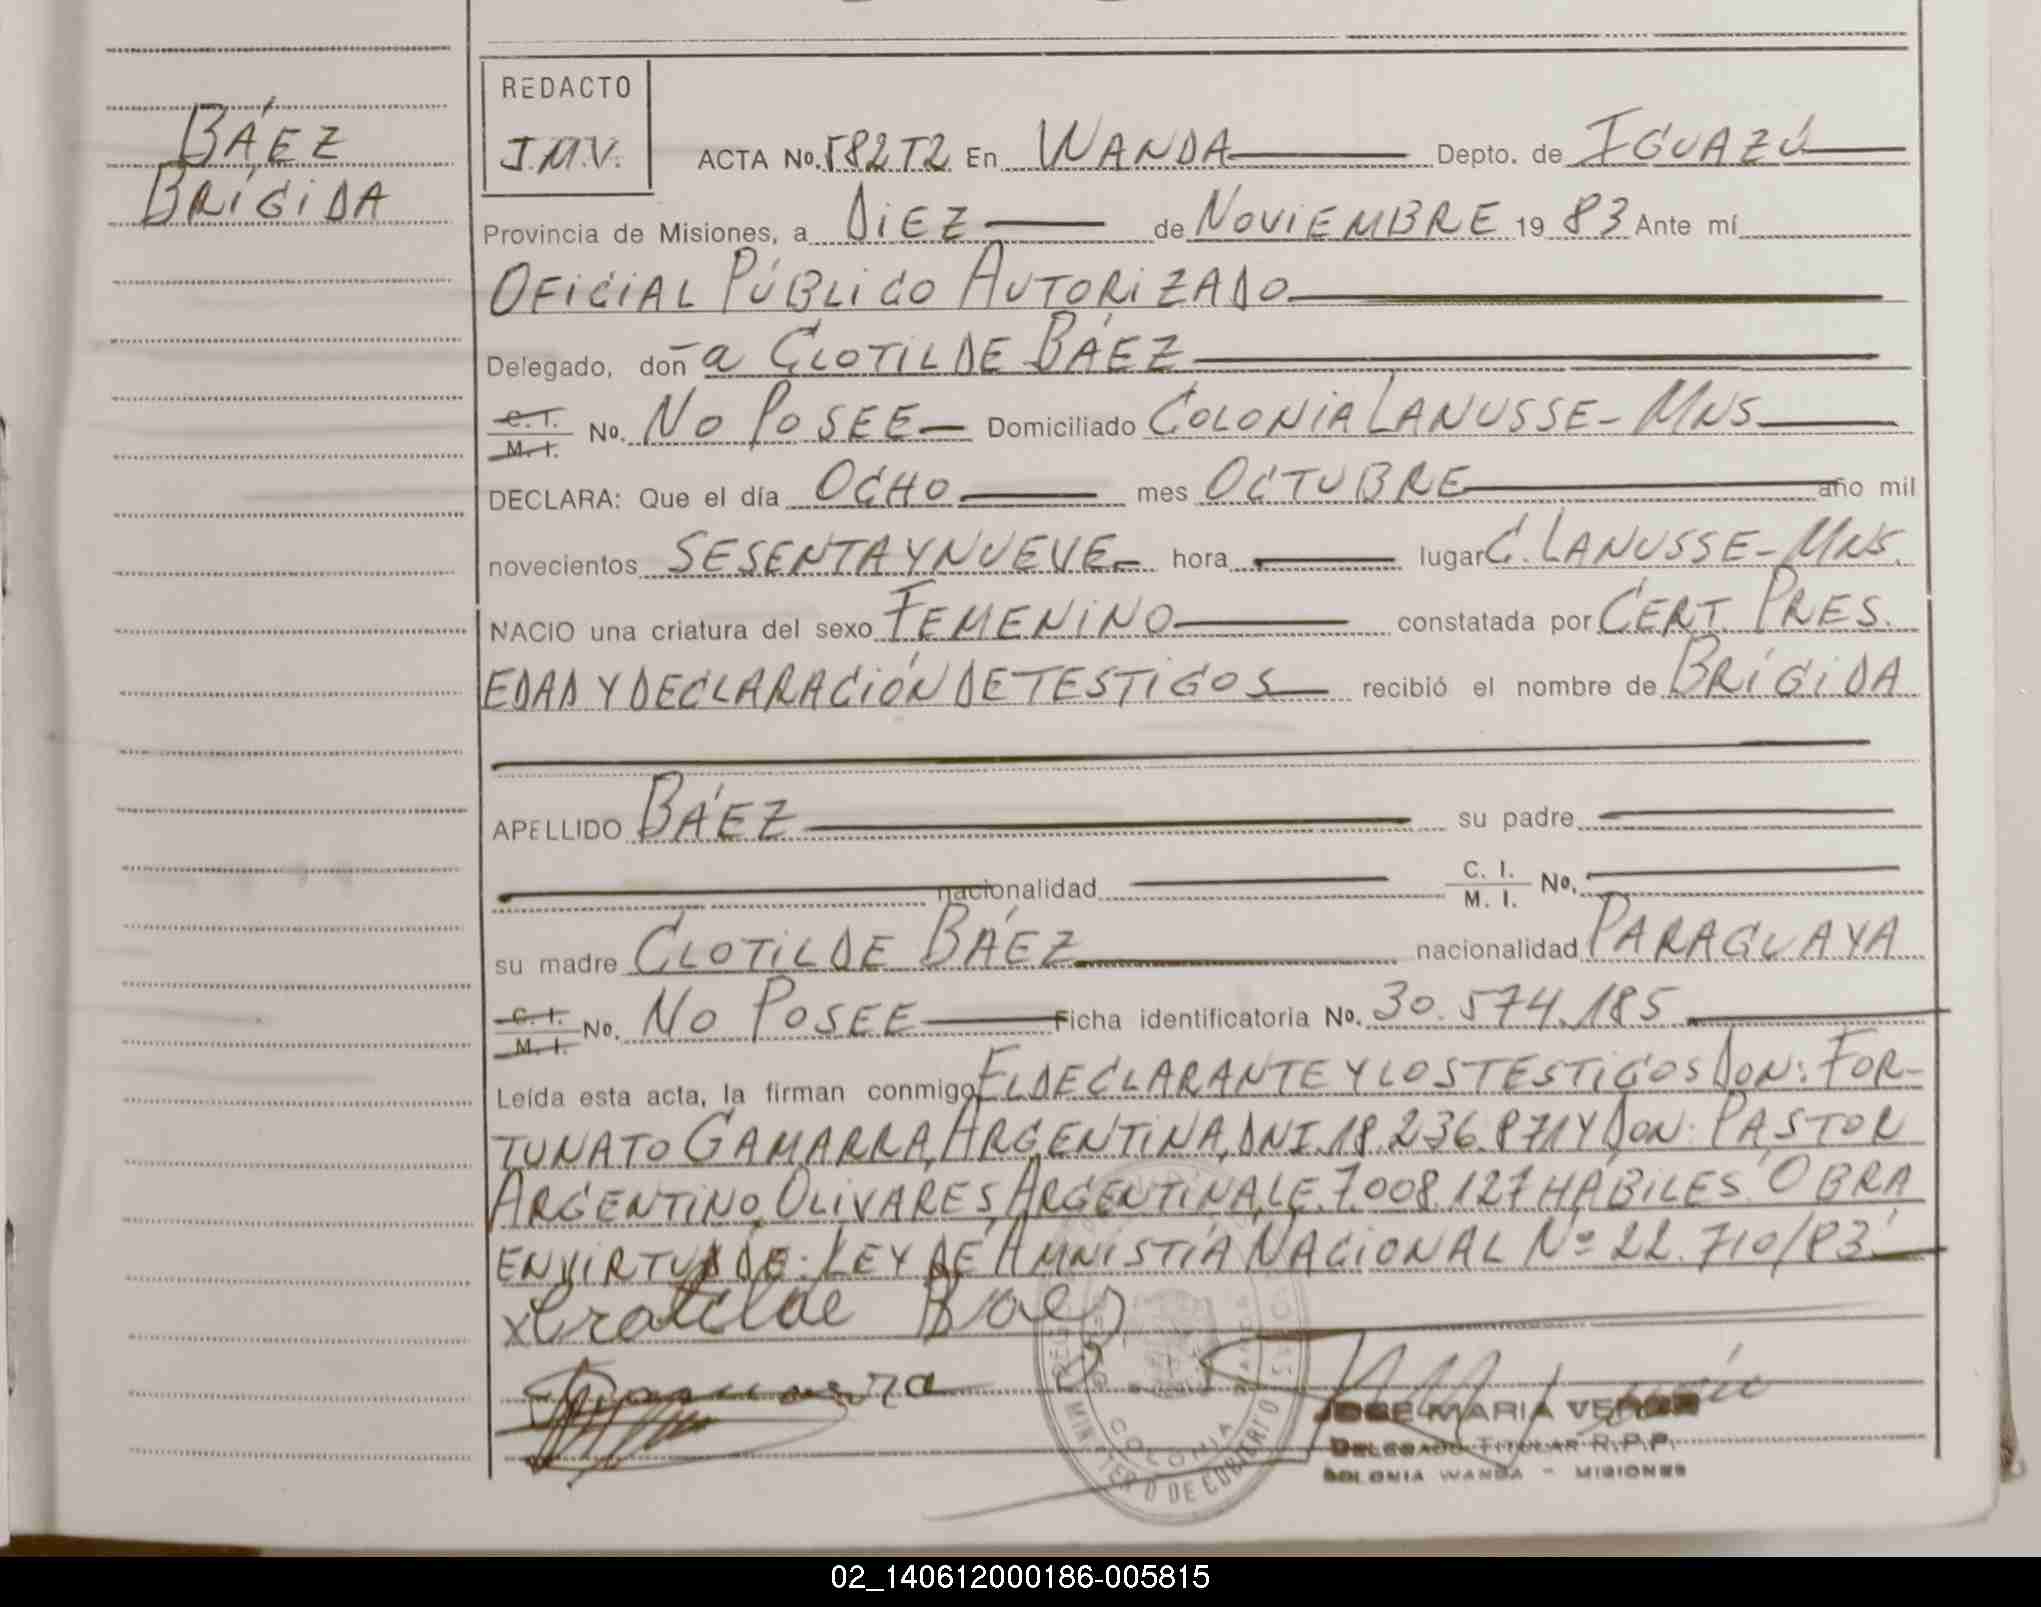 BÁEZ
BRÍGIDA
REDACTO
J.M.V.
ACTA No. 582T2 En WANDA Depto. de IGUAZÚ
Provincia de Misiones, a DIEZ de NOVIEMBRE 19 83 Ante mí
OFICIAL PÚBLICO AUTORIZADO
Delegado, don~a CLOTILDE BÁEZ
C. I. / M. I. No. NO POSEE Domiciliado COLONIA LANUSSE - MNS
DECLARA: Que el día OCHO mes OCTUBRE año mil
novecientos SESENTA Y NUEVE hora lugar C. LANUSSE - MNS.
NACIO una criatura del sexo FEMENINO constatada por CERT. PRES.
EDAD Y DECLARACIÓN DE TESTIGOS recibió el nombre de BRÍGIDA
APELLIDO BÁEZ su padre
nacionalidad C. I. / M. I. No.
su madre CLOTILDE BÁEZ nacionalidad PARAGUAYA
C. I. / M. I. No. NO POSEE Ficha identificatoria No. 30.574.185
Leída esta acta, la firman conmigo EL DECLARANTE Y LOS TESTIGOS DON: FOR-
TUNATO GAMARRA, ARGENTINA, DNI. 18.236.871 Y DON: PASTOR
ARGENTINO OLIVARES, ARGENTINA, LE. 7.008.127 HÁBILES. OBRA
EN VIRTUD DE: LEY DE AMNISTÍA NACIONAL Nº 22.710/83
x Cratilde Baez
Gamarra
MINISTERIO DE GOBIERNO
COLONIA WANDA
JOSE MARIA
DELEGADO TITULAR R.P.P.
COLONIA WANDA - MISIONES
02_140612000186-005815